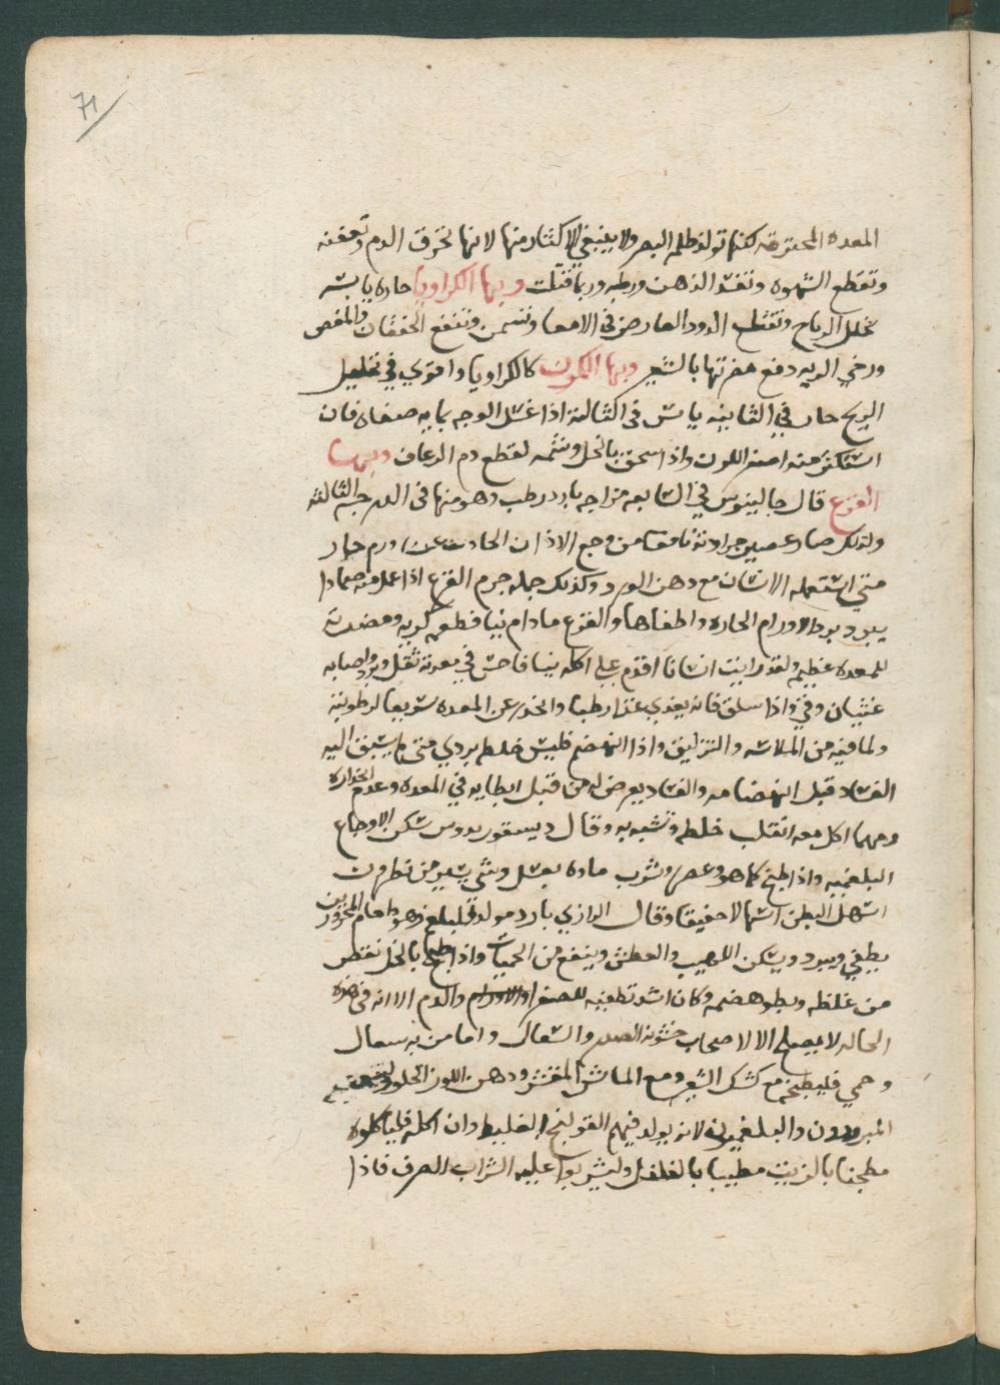 71
المعده المحترقه لكنها تولد ظلمه البصر ولا ينبغي الاكثار منها لانها تحرق الدم وتعفنه
وتقطع الشهوه وتفسد الذهن ورطبه وربما قتلت وبها الكراويا حاره يابسه
تحلل الرياح وتقتل الدود العارض في الامعا وتسمن وتنفع الخفقان والمغص
ورخي الريه دفع مضرتها بالشعير وبها الكمون كالكراويا واقوي في تحليل
الريح حار في الثانيه يابس في الثالثة اذا غسل الوجه بمايه صفاه فان
استكثر منه اصفر اللون واذا سحق بالخل وشمه لقطع دم الرعاف وبها
القرع قال جالينوس في السابعه مزاجه بارد رطب وهو منها في الدرجه الثالثه
ولذلك صار عصير جرادته نافعا من وجع الاذان الحادث عن ورم حار
متي استعمله الانسان مع دهن الورد وكذلك جمله جرم القرع اذا عمل منه ضمادا
يبرد برد الاورام الحاره واطفاها والقرع مادام نيا فطعمه كريه ومضرته
للمعده عظيمه ولقد رايت انسانا اقدم علي اكله نيا فاحس في معدته ثقل وبرد واصابه
غثيان وقي واذا سلق فانه يغدي غذا رطبا وانحدر عن المعده سريعا لرطوبته
ولما فيه من الملاسه والتزليق واذا انهضم فليس خلطه بردي متي لم يسبق اليه
الفساد قبل انهضامه والفساد يعرض له من قبل ابطايه في المعده وعدم انحداره
ومهما اكل معه انقلب خلطه وتشبه به وقال ديسقوريدوس يسكن الاوجاع
البلغميه واذا طبخ كما هو وعصر وشرب ماوه بعسل وشي يسير من نطرون
اسهل البطن اسهالا خفيفا وقال الرازي بارد مولد للبلغم وهو طعام المحرورين
يطفي ويبرد ويسكن اللهيب والعطش وينفع من الحميات واذا طبخ بالخل نقص
من غلظه وبطو هضمه وكان اشد تطفيه للصفرا والدم الا انه في هذه
الحاله لا يصلح الا لاصحاب خشونه الصدر والسعال واما من به سعال
وحمي فليطبخه مع كشك الشعير ومع الماش المقشر ودهن اللوز الحلو
المبرودون والبلغميون لانه يولد فيهم القولنج الغليظ وان اكله فلياكلوه
مطجنا بالزيت مطيبا بالفلفل وليشربوا عليه الشراب الصرف فاذا